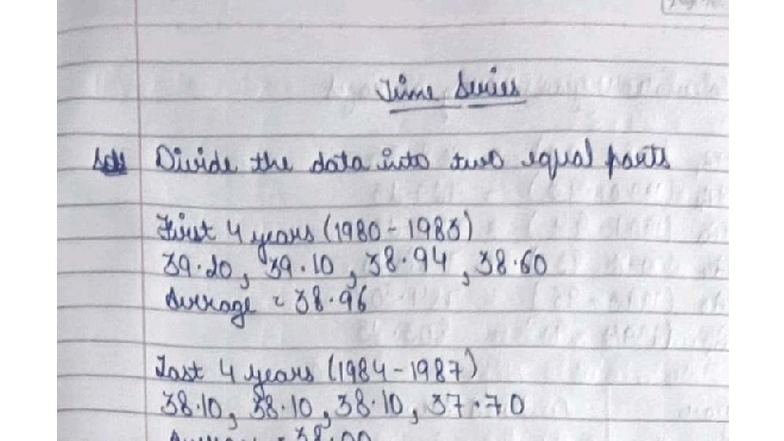 Time Series
Soln Divide the data into two equal parts
First 4 years (1980 - 1983)
39.20, 39.10, 38.94, 38.60
Average = 38.96
Last 4 years (1984 - 1987)
38.10, 38.10, 38.10, 37.70
Average = 38.00